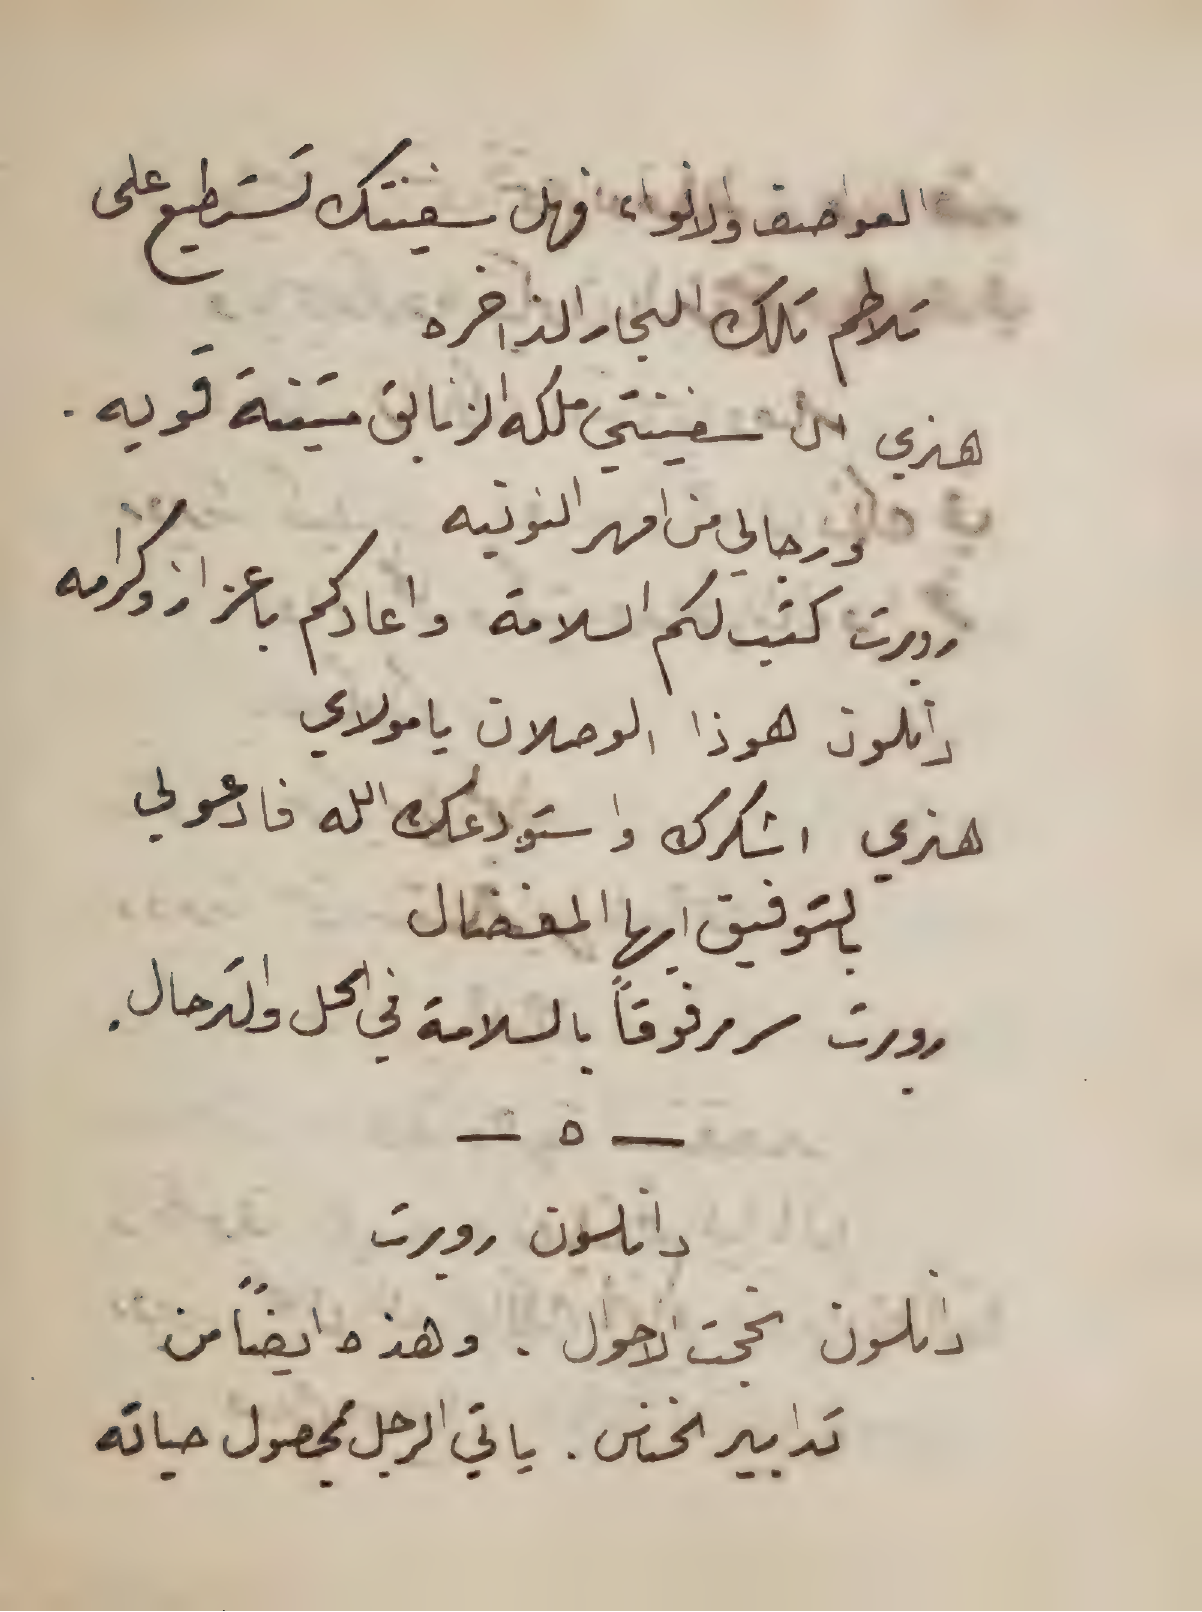 العواصف والانواء فهل سفينتك تستطيع على
تلاطم تلك البحار الذاخره
هنري ان سفينتي ملكه الزنابق متينة قويه .
ورجالي من امهر النوتيه
روبرت كتب لكم السلامة واعادكم باعزاز وكرامه
دانلسون هوذا الوصلان يا مولاي
هنري اشكرك واستودعك الله فادعولي
بالتوفيق ايها المفضال
روبرت سر مرفوقاً بالسلامة في الحل والترحال .
— ٥ —
دانلسون روبرت
دانلسون نجحت الاحوال . وهذه ايضاً من
تدابير الخناس . ياتي الرجل بمحصول حياته